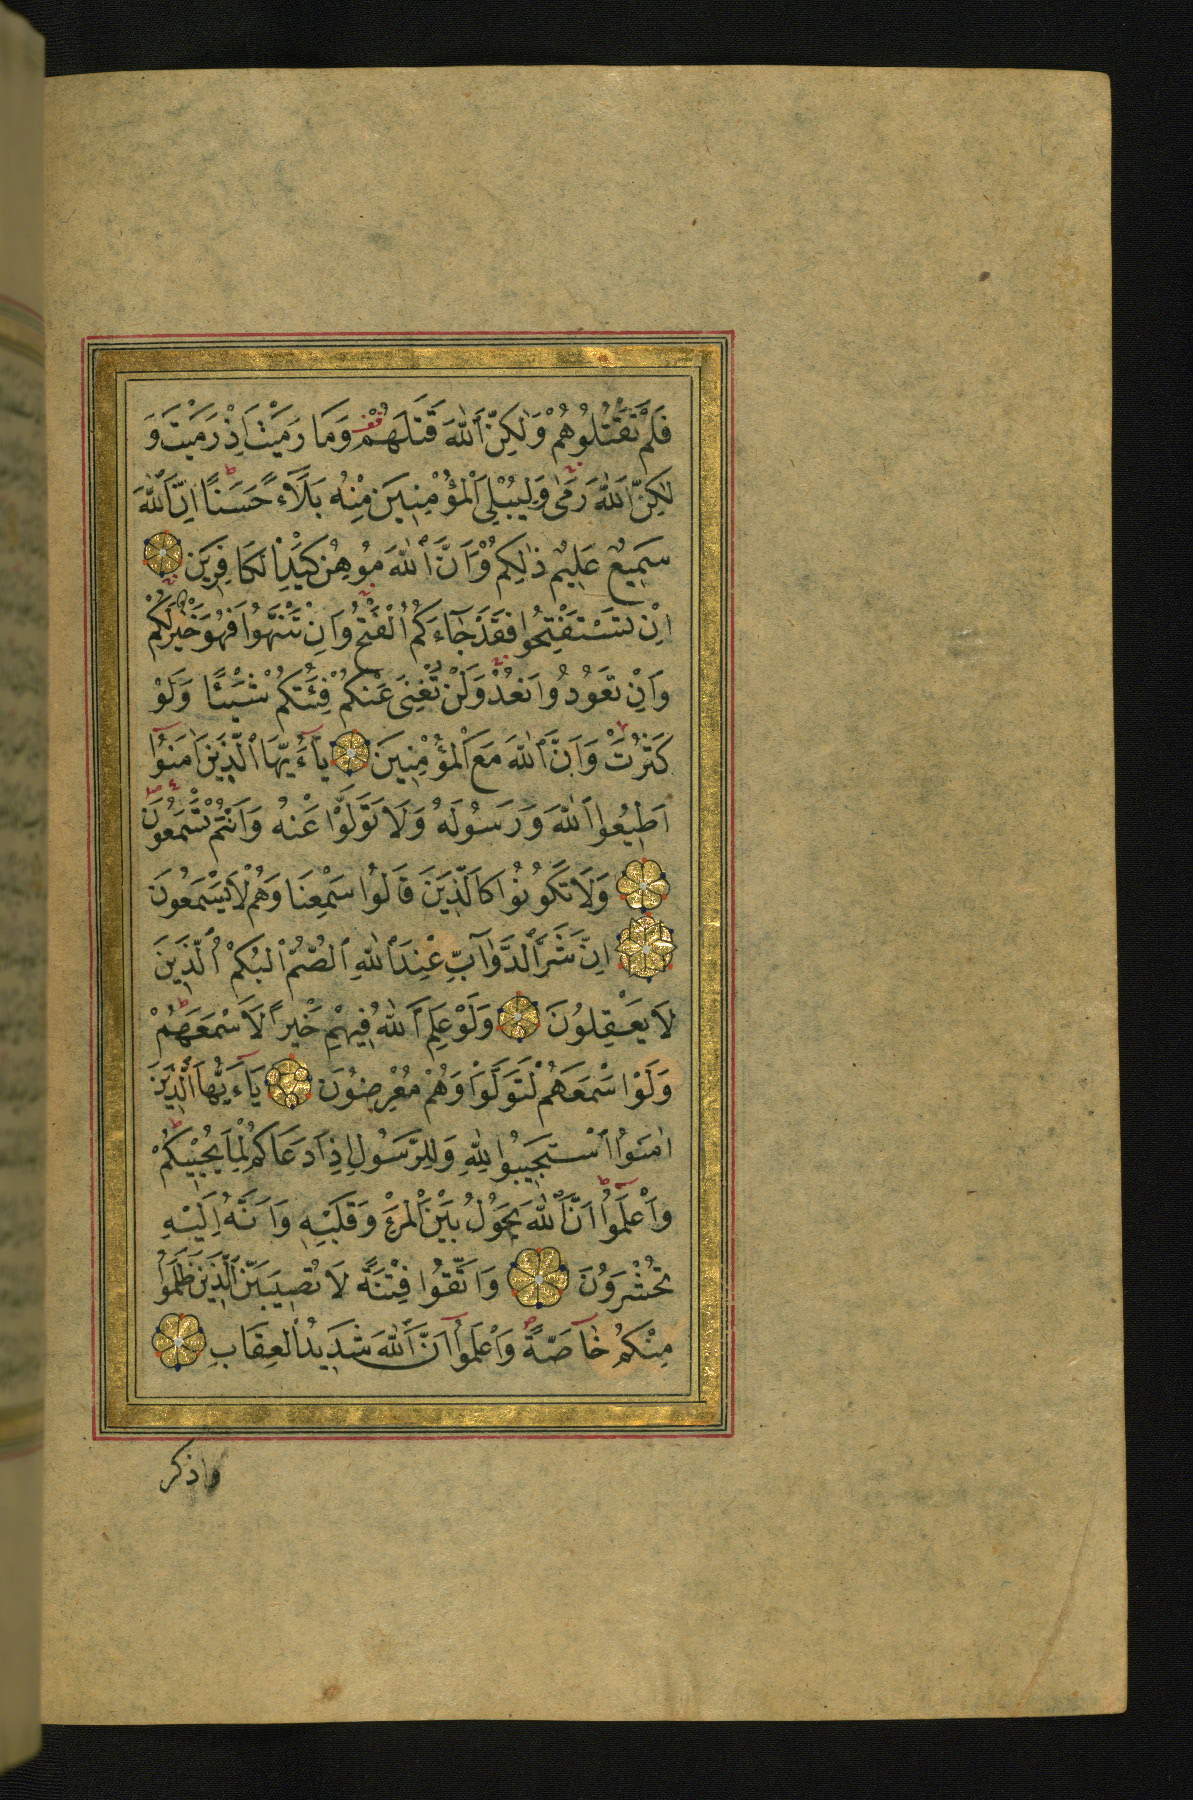 فَلَمْ تَقْتُلُوهُمْ وَلٰكِنَّ ٱللّٰهَ قَتَلَهُمْ وَمَا رَمَيْتَ اِذْ رَمَيْتَ وَ
لٰكِنَّ ٱللّٰهَ رَمٰى وَلِيُبْلِىَ ٱلْمُؤْمِنِينَ مِنْهُ بَلَآءً حَسَنًا اِنَّ ٱللّٰهَ
سَمِيعٌ عَلِيمٌ ذٰلِكُمْ وَاَنَّ ٱللّٰهَ مُوهِنُ كَيْدِ الْكَافِرِينَ
اِنْ تَسْتَفْتِحُوا فَقَدْ جَآءَكُمُ الْفَتْحُ وَاِنْ تَنْتَهُوا فَهُوَ خَيْرٌ لَكُمْ
وَاِنْ تَعُودُوا نَعُدْ وَلَنْ تُغْنِىَ عَنْكُمْ فِئَتُكُمْ شَيْئًا وَلَوْ
كَثُرَتْ وَاَنَّ ٱللّٰهَ مَعَ ٱلْمُؤْمِنِينَ يَآءَيُّهَا ٱلَّذِينَ اٰمَنُوٓا
اَطِيعُوا ٱللّٰهَ وَرَسُولَهُ وَلَا تَوَلَّوْا عَنْهُ وَاَنْتُمْ تَسْمَعُونَ
وَلَا تَكُونُوا كَالَّذِينَ قَالُوا سَمِعْنَا وَهُمْ لَا يَسْمَعُونَ
اِنَّ شَرَّ ٱلدَّوَآبِّ عِنْدَ ٱللّٰهِ ٱلصُّمُّ ٱلْبُكْمُ ٱلَّذِينَ
لَا يَعْقِلُونَ وَلَوْ عَلِمَ ٱللّٰهُ فِيهِمْ خَيْرًا لَاَسْمَعَهُمْ
وَلَوْ اَسْمَعَهُمْ لَتَوَلَّوْا وَهُمْ مُعْرِضُونَ يَآءَيُّهَا ٱلَّذِينَ
اٰمَنُوا ٱسْتَجِيبُوا لِلّٰهِ وَلِلرَّسُولِ اِذَا دَعَاكُمْ لِمَا يُحْيِيكُمْ
وَٱعْلَمُوٓا اَنَّ ٱللّٰهَ يَحُولُ بَيْنَ ٱلْمَرْءِ وَقَلْبِهِ وَاَنَّهُ اِلَيْهِ
تُحْشَرُونَ وَاتَّقُوا فِتْنَةً لَا تُصِيبَنَّ ٱلَّذِينَ ظَلَمُوا
مِنْكُمْ خَآصَّةً وَٱعْلَمُوٓا اَنَّ ٱللّٰهَ شَدِيدُ الْعِقَابِ
واذكر